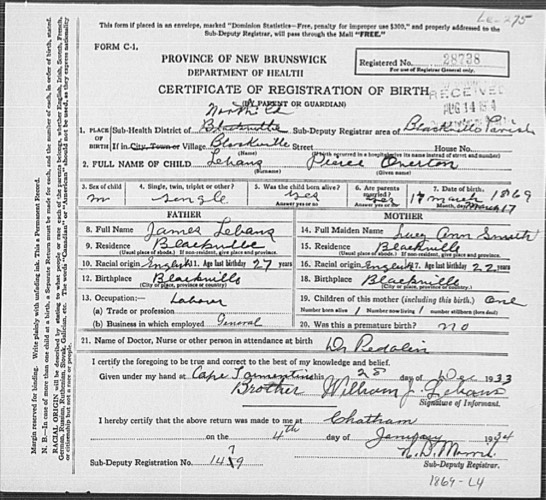 This form if placed in an envelope, marked "Dominion Statistics—Free, penalty for improper use $300," and properly addressed to the
Sub-Deputy Registrar, will pass through the Mail "FREE."
LE-275
FORM C-1.
PROVINCE OF NEW BRUNSWICK
DEPARTMENT OF HEALTH
Registered No. 28738
For use of Registrar General only.
CERTIFICATE OF REGISTRATION OF BIRTH
(BY PARENT OR GUARDIAN)
RECEIVED
AUG 14
1. PLACE OF BIRTH
Sub-Health District of Blackville Sub-Deputy Registrar area of Blackville Parish
If in City, Town or Village Blackville Street House No.
(Name) (If birth occurred in a hospital give its name instead of street and number)
2. FULL NAME OF CHILD Lebans Pierce
(Surname) (Given name)
3. Sex of child m
4. Single, twin, triplet or other? single
5. Was the child born alive? yes
Answer yes or no
6. Are parents married? yes
Answer yes or no
7. Date of birth. 17 march 1869
March 17
FATHER
8. Full Name James Lebans
9. Residence Blackville
(Usual place of abode.) If non-resident, give place and province.
10. Racial origin English 11. Age last birthday 27 years
12. Birthplace Blackville
(City or place, province or country)
13. Occupation:— Labour
(a) Trade or profession
(b) Business in which employed General
MOTHER
14. Full Maiden Name Lucy Ann Smith
15. Residence Blackville
(Usual place of abode.) If non-resident, give place and province.
16. Racial origin English 17. Age last birthday 22 years
18. Birthplace Blackville
(City or place, province or country.)
19. Children of this mother (including this birth.) One
Number born alive 1 Number now living 1 number stillborn (born dead)
20. Was this a premature birth? no
21. Name of Doctor, Nurse or other person in attendance at birth Dr Pedolin
I certify the foregoing to be true and correct to the best of my knowledge and belief.
Given under my hand at Cape Tormentine this 28 day of Dec 1933
Brother William J. Lebans
Signature of Informant.
I hereby certify that the above return was made to me at Chatham
on the 4th day of January 1934
Sub-Deputy Registration No.
Sub-Deputy Registrar.
1869-L4
Margin reserved for binding. Write plainly with unfading ink. This is a Permanent Record.
N. B.—In case of more than one child at a birth, a Separate Return must be made for each, and the number of each, in order of birth, stated.
RACIAL ORIGIN will be described by stating to what people or race each of the parents belongs, whether English, Irish, Scotch, French,
German, Russian, Ruthenian, Slovak, Galician, etc. The words "Canadian" or "American" should not be used, as they express nationality
or citizenship but not a race or people.